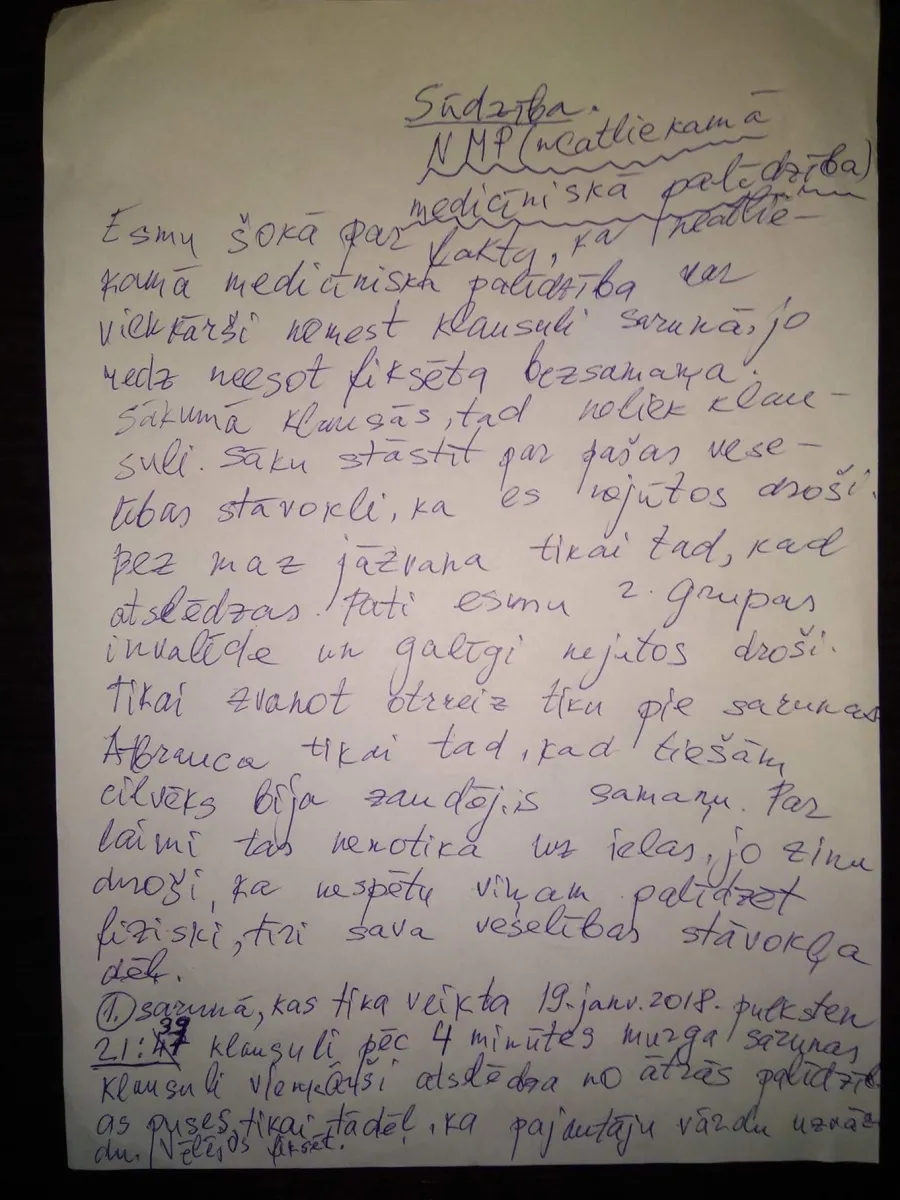 Sūdzība.
NMP (neatliekamā
medicīniskā palīdzība)
Esmu šokā par faktu, ka neatlie-
kamā medicīniskā palīdzība var
vienkārši nomest klausuli sarunā, jo
redz neesot fiksēta bezsamaņa.
Sākumā klausās, tad noliek klau-
suli. Sāku stāstīt par pašas vese-
lības stāvokli, ka es nejūtos droši.
Bez maz jāzvana tikai tad, kad
atslēdzas. Pati esmu 2. grupas
invalīde un galīgi nejutos droši.
Tikai zvanot otrreiz tiku pie sarunas
Atbrauca tikai tad, kad tiešām
cilvēks bija zaudējis samaņu. Par
laimi tas nenotika uz ielas, jo zinu
droši, ka nespētu viņam palīdzēt
fiziski, tīri sava veselības stāvokļa
dēļ.
1. sarunā, kas tika veikta 19. janv. 2018. pulksten
21:39 klausuli pēc 4 minūtes murga sarunas
klausuli vienkārši atslēdza no ātrās palīdzīb
as puses, tikai tādēļ, ka pajautāju vārdu uzvār
du. Vēlējos fiksēt.